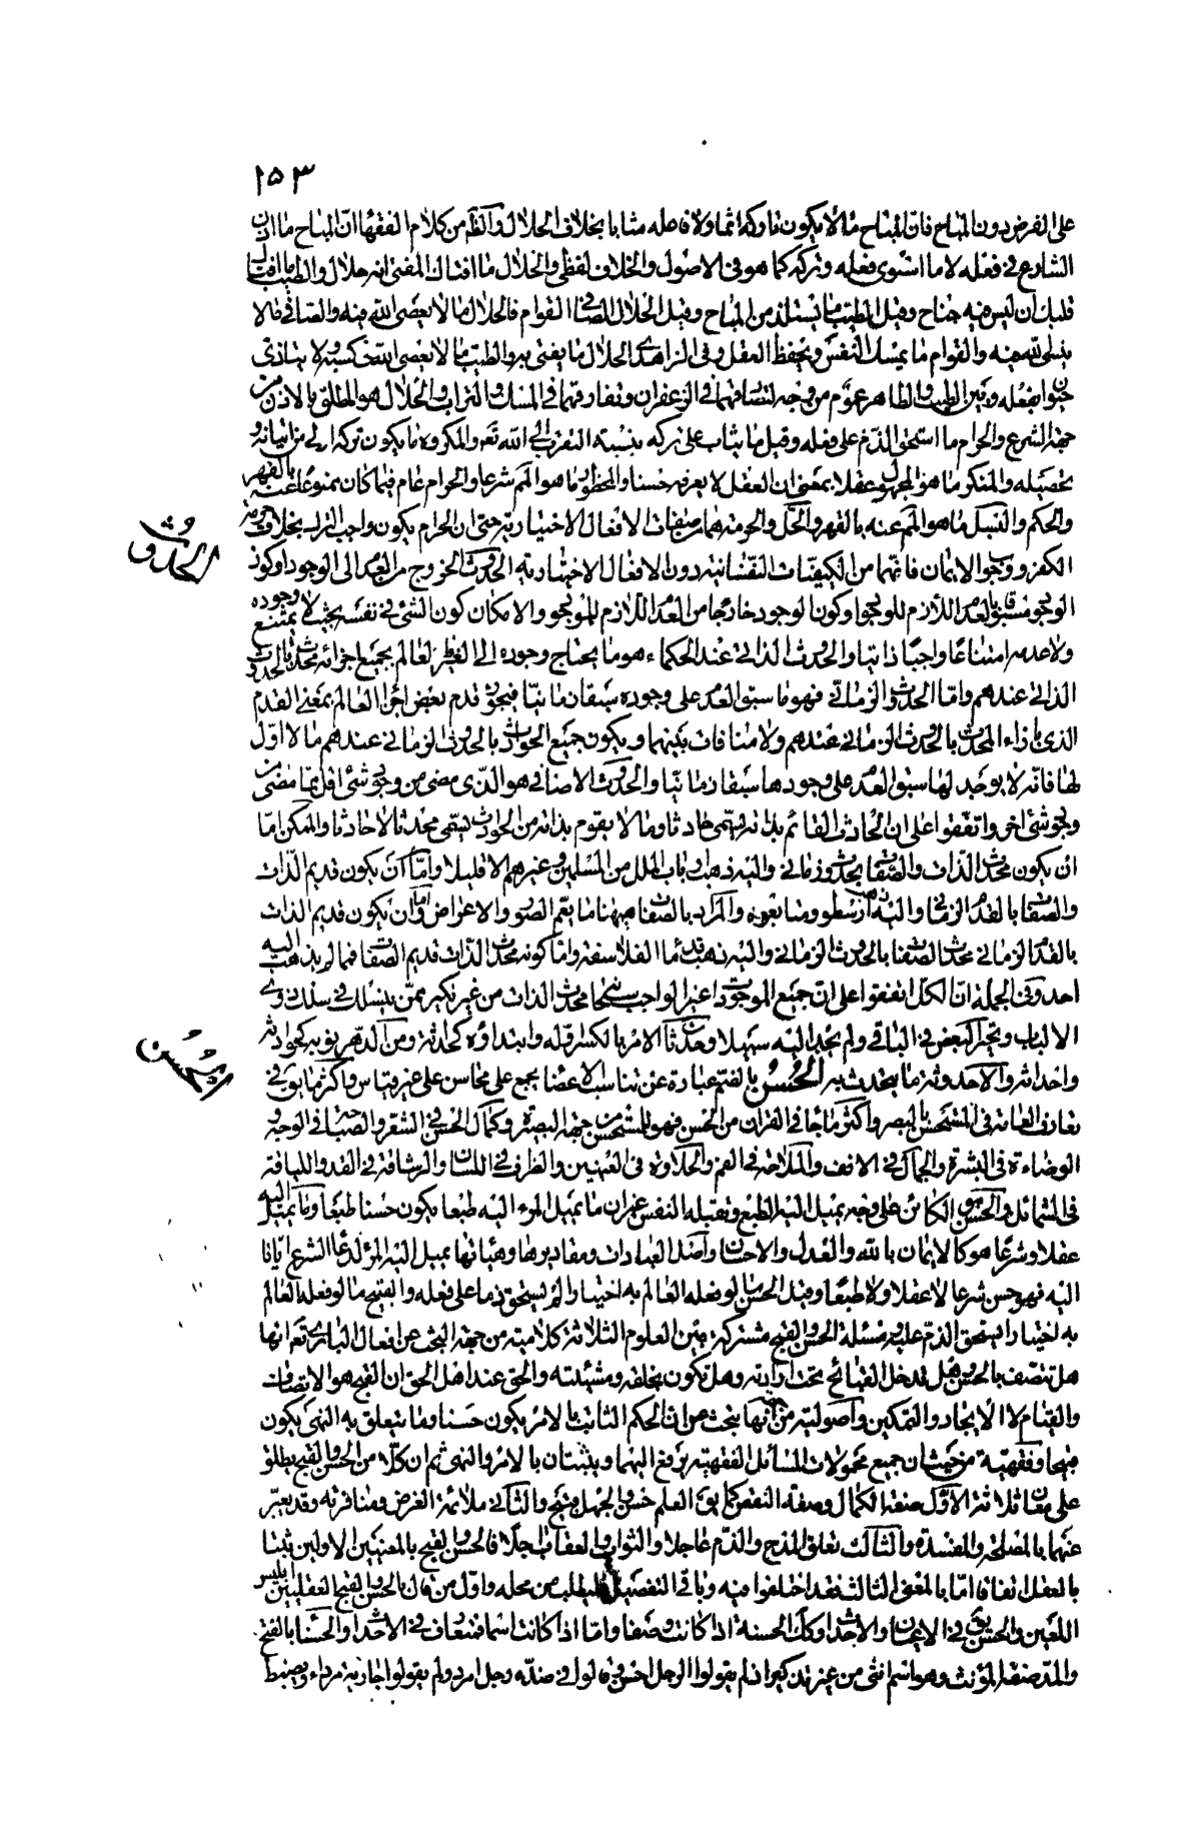 ١٥٣
على الفرض دون المباح فان المباح ما لا يكون تاركه آثما ولا فاعله مثابا بخلاف الحلال والظ من كلام الفقها ان المباح ما اذن
الشارع في فعله لا ما استوى فعله وتركه كما هو في الاصول والخلاف لفظي والحلال ما افتاك المفتي انه حلال والطيب ما افتاك
قلبك ان ليس فيه جناح وقيل الطيب ما يستلذ من المباح وقيل الحلال الصافي القوام فالحلال ما لا يعصى الله فيه والصافي ما لا
ينسى الله فيه والقوام ما يمسك النفس ويحفظ العقل وفي الزاهدي الحلال ما يفتى به والطيب ما لا يعصى الله في كسبه ولا يتاذى
حيوان بفعله وبين الطيب والطاهر عموم من وجه لتصادقهما في الزعفران وتفارقهما في المسك والتراب والحلال هو المطلق بالاذن من
جهة الشرع والحرام ما استحق الذم على فعله وقيل ما يثاب على تركه بنية التقرب الى الله تعه والمكروه ما يكون تركه اولى من اتيانه و
تحصيله والمنكر ما هو المجهول عقلا بمعنى ان العقل لا يعرفه حسنا والمحظور ما هو المحرم شرعا والحرام عام فيما كان ممنوعا عنه بالقهر
والحكم والبسل ما هو الممنوع عنه بالقهر والحل والحرمة هما من صفات الافعال الاختيارية حتى ان الحرام يكون واجب الترك بخلاف حرمة
الكفر ووجوب الايمان فانهما من الكيفيات النفسانية دون الافعال الاختيارية الحدوث الخروج من العدم الى الوجود او كون
الوجود مسبوقا بالعدم اللازم للوجود او كون الوجود خارجا من العدم اللازم للموجود والامكان كون الشئ في نفسه بحيث لا يمتنع وجوده
ولا عدمه امتناعا واجبا ذاتيا والحدوث الذاتي عند الحكماء هو ما يحتاج وجوده الى الغير فالعالم بجميع اجزائه محدث بالحدوث
الذاتي عندهم واما الحدوث الزماني فهو ما سبق العدم على وجوده سبقا زمانيا فيجوز قدم بعض اجزاء العالم بمعنى القدم
الذي بازاء المحدث بالحدوث الزماني عندهم ولا منافات بينهما ويكون جميع الحوادث بالحدوث الزماني عندهم ما لا اول
لها فانه لا يوجد لها سبق العدم على وجودها سبقا زمانيا والحدوث الاضافي هو الذي مضى من وجود شئ اقل مما مضى من
وجود شئ اخر واتفقوا على ان الحادث القائم بذاته يسمى حادثا وما لا يقوم بذاته من الحوادث يسمى محدثا لا حادثا والممكن اما
ان يكون محدث الذات والصفات بحدوث زماني واليه ذهب ارباب الملل من المسلمين وغيرهم الا قليلا واما ان يكون قديم الذات
والصفات بالقدم الزماني واليه ذهب ارسطو ومتابعوه والمراد بالصفات ههنا ما يعم الصور والاعراض واما ان يكون قديم الذات
بالقدم الزماني محدث الصفات بالحدوث الزماني واليه ذهب قدماء الفلاسفة واما كونه محدث الذات قديم الصفات فما لم يذهب اليه
احد وفي الجملة ان الكل اتفقوا على ان جميع الموجودات غير الواجب سبحانه محدث الذات من غير نكير ممن ينسلك في سلك ذوي
الالباب وتحير البعض في الباقي ولم يجد اليه سبيلا وحدثان الامر بالكسر اوله وابتداؤه كحداثته ومن الدهر نوبه كحوادثه
واحداثه والاحدوثة ما يتحدث به الحُسْن بالضم عبارة عن تناسب الاعضا يجمع على محاسن على غير قياس واكثر ما يق في
تعارف العامة في المستحسن بالبصر واكثر ما جا في القران من الحسن فهو للمستحسن من جهة البصيرة وكمال الحسن في الشعر والصباحة في الوجه و
الوضاءة في البشرة والجمال في الانف والملاحة في الفم والحلاوة في العينين والظرف في اللسان والرشاقة في القد واللباقة
في الشمائل والحسن هو الكائن على وجه يميل اليه الطبع وتقبله النفس غير ان ما يميل المرء اليه طبعا يكون حسنا طبعا وما يميل اليه
عقلا وشرعا هو كالايمان بالله والعدل والاحسان واصل العبادات ومقاديرها وهيئاتها يميل اليه المرء لدعا الشرع ايانا
اليه فهو حسن شرعا لا عقلا ولا طبعا وقيل الحسن ما لو فعله العالم به اختيارا لم يستحق ذما على فعله والقبيح ما لو فعله العالم
به اختيارا يستحق الذم عليه ومسئلة الحسن والقبح مشتركة بين العلوم الثلاثة كلامية من جهة البحث عن افعال الباري تعه انها
هل تتصف بالحسن وهل تدخل القبائح تحت ارادته وهل تكون بخلقه ومشيئته والحق عند اهل الحق ان القبح هو الاتصاف
والقيام لا الايجاد والتمكين واصولية من جهة انها يبحث عن ان الحكم الثابت بالامر يكون حسنا وما يتعلق به النهي يكون
قبيحا وفقهية من حيث ان جميع محمولات المسائل الفقهية يرجع اليهما ويثبتان بالامر والنهي ثم ان كلا من الحسن والقبح يطلق
على معان ثلاثة الاول صفة الكمال وصفة النقص كما يق العلم حسن والجهل قبيح والثاني ملائمة الغرض ومنافرته وقد يعبر
عنهما بالمصلحة والمفسدة والثالث تعلق المدح والذم عاجلا والثواب والعقاب اجلا فالحسن والقبح بالمعنيين الاولين ثبتا
بالعقل اتفاقا اما بالمعنى الثالث فقد اختلفوا فيه وباقي التفصيل فليطلب من محله واول من قال بالحسن والقبح العقليين ابليس
اللعين والحسن يق في الاعيان والاحداث وكذلك الحسنة اذا كانت وصفا واما اذا كانت اسما فمتعارف في الاحداث والحسنا بالفتح
والمد صفة المؤنث وهو اسم انثى من غير تذكير اذ لم يقولوا الرجل احسن وقالوا في ضده رجل امرد ولم يقولوا جارية مرداء ويضبط
الحدوث
الحُسن